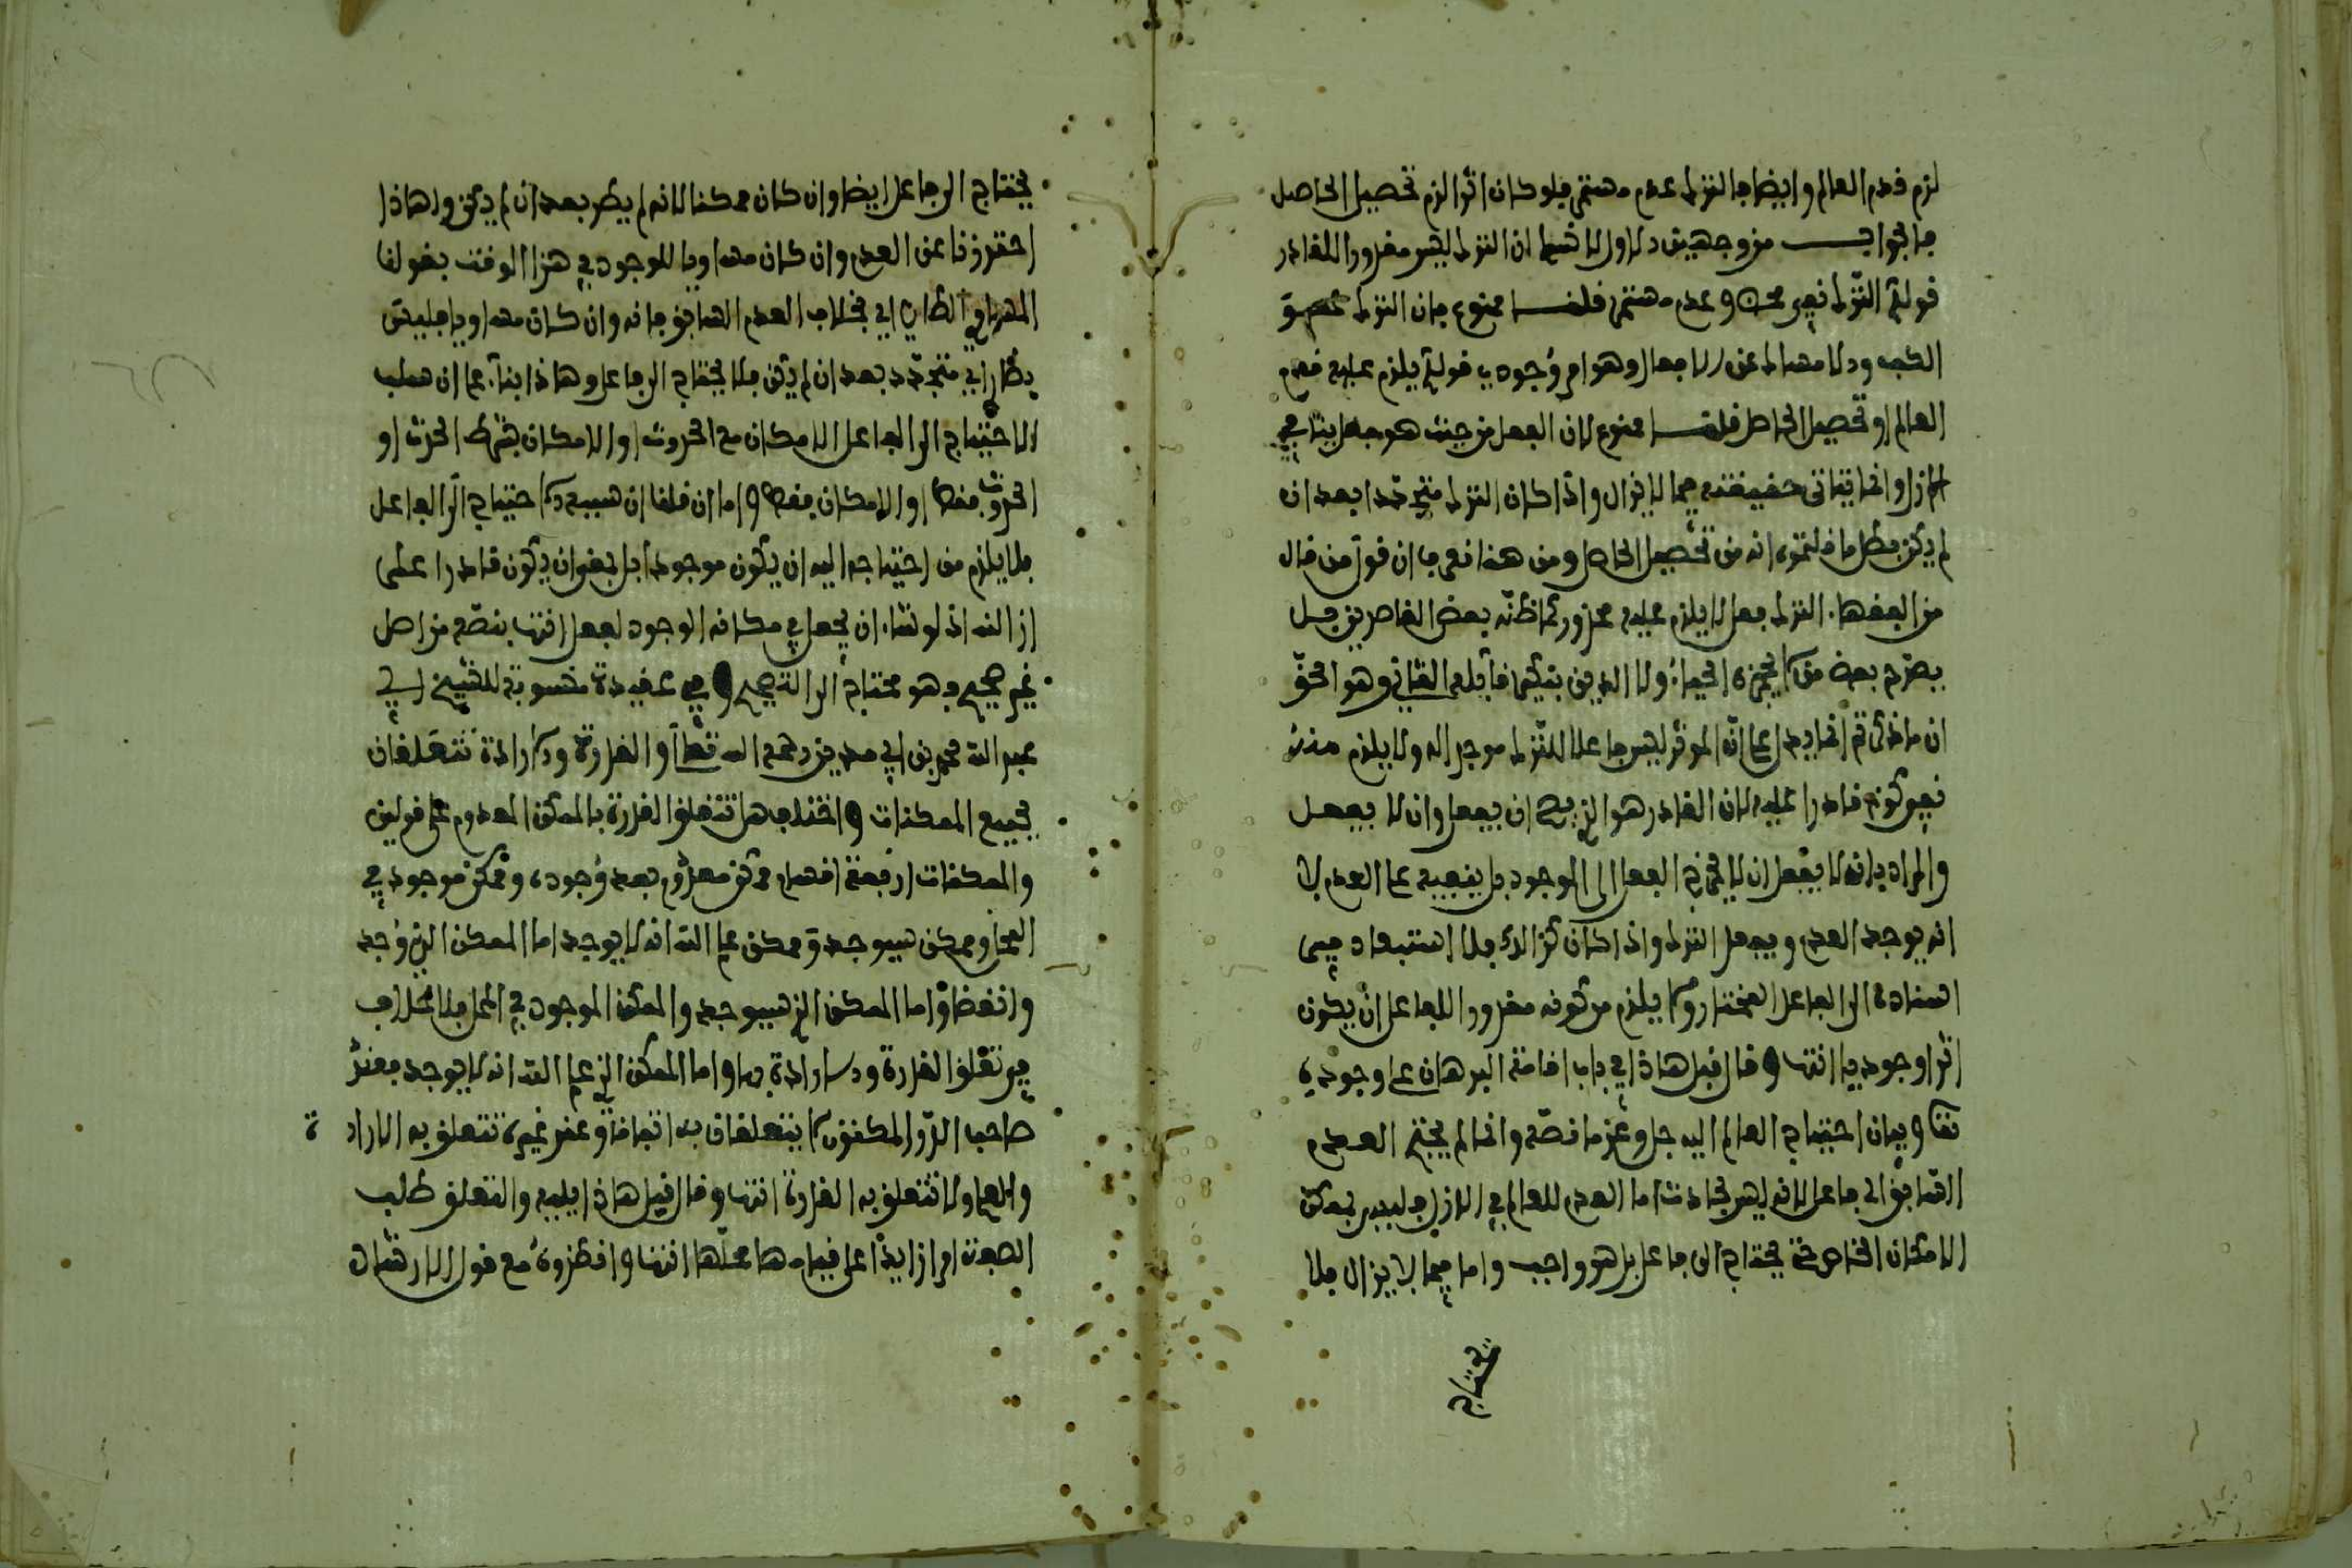 لزم قدم العالم وايضا فالترك عدم مستمر فلو كان اثرا لزم تحصيل الحاصل
فالجواب من وجهين الاول لا نسلم ان الترك ليس مقدورا للقادر
قوله الترك نفي محض وعدم مستمر قلنا ممنوع فان الترك
الكف والامساك عن الافعال وهو امر وجودي قوله يلزم عليه قدم
العالم او تحصيل الحاصل قلنا ممنوع لان الفعل من حيث هو فعل ينافي
الازل وانما يتاتى حقيقته فيما لا يزال واذا كان الترك متجددا بعد ان
لم يكن بطل ما قلتموه انه من تحصيل الحاصل ومن هنا تعرف ان قول من قال
من الفقهاء الترك فعل لا يلزم عليه محذور كما ظنه بعض القاصرين
يصرح بعض من الحياء ولا الدين بتكفير قائله الثاني وهو الحق
ان ماذكرتم انما يدل على ان الموثر ليس فاعلا للترك موجدا له ولا يلزم منه
نفي كونه قادرا عليه لان القادر هو الذي يصح ان يفعل وان لا يفعل
والمراد بانه لا يفعل ان لا يخرج الفعل الى الوجود بل يبقيه على العدم لا
انه يوجد العدم ويفعل الترك واذا كان كذلك فلا استبعاد في
اسناده الى الفاعل المختار ولا يلزم من كونه مقدورا للفاعل ان يكون
اثرا وجوديا انتهى وقال قبل هذا في باب اقامة البرهان على وجوده
تعالى وبيان احتياج العالم اليه جل وعز ما نصه وانما لم يحتج العدم
السابق الى فاعل لانه ليس بحادث اما العدم للعالم في الازل فليس بممكن
الامكان الخاص حتى يحتاج الى فاعل بل هو واجب واما فيما لا يزال فلا
يحتاج
يحتاج الى فاعل ايضا وان كان ممكنا لانه لم يطر بعد ان لم يكن ولهاذا
احترزنا عن العدم وان كان مساويا للوجود في هذا الوقت بقولنا
المساوي الطاري اي بخلاف العدم السابق فانه وان كان مساويا فليس
بطاري اي متجدد بعد ان لم يكن فلا يحتاج الى فاعل وهاذا بناء على ان سبب
الاحتياج الى الفاعل الامكان مع الحدوث او الامكان بشرط الحدث او
الحدوث فقط او الامكان فقط واما ان قلنا ان سببه الاحتياج الى الفاعل
فلا يلزم من احتياجه اليه ان يكون موجودا بل بمعنى ان يكون قادرا على
ازالته اذ لو شاء ان يجعل في مكانه الوجود لفعل انتهى بنصه من اصل
غير صحيح وهو محتاج الى التصحيح وفي عقيدة منسوبة للشيخ ابي
عبد الله محمد بن ابي مدين رحمه الله تعالى والقدرة والارادة تتعلقان
بجميع الممكنات واختلف هل تتعلق القدرة بالممكن المعدوم على قولين
والممكنات اربعة اقسام ممكن معدوم بعد وجوده وممكن موجود في
الحال وممكن سيوجد وممكن علم الله انه لا يوجد اما الممكن الذي وجد
وانقضى واما الممكن الذي سيوجد والممكن الموجود في الحال فلا خلاف
في تعلق القدرة والارادة بها واما الممكن الذي علم الله انه لا يوجد فعند
صاحب الدر المكنون لا يتعلقان به اتفاقا وعند غيره تتعلق به الارادة
والعلم ولا تتعلق به القدرة انتهى وقال قبل هاذا بيسير والتعلق طلب
الصفة امرا زايدا على قيامها بمحلها انتهى وانظروه مع قول الارشاد